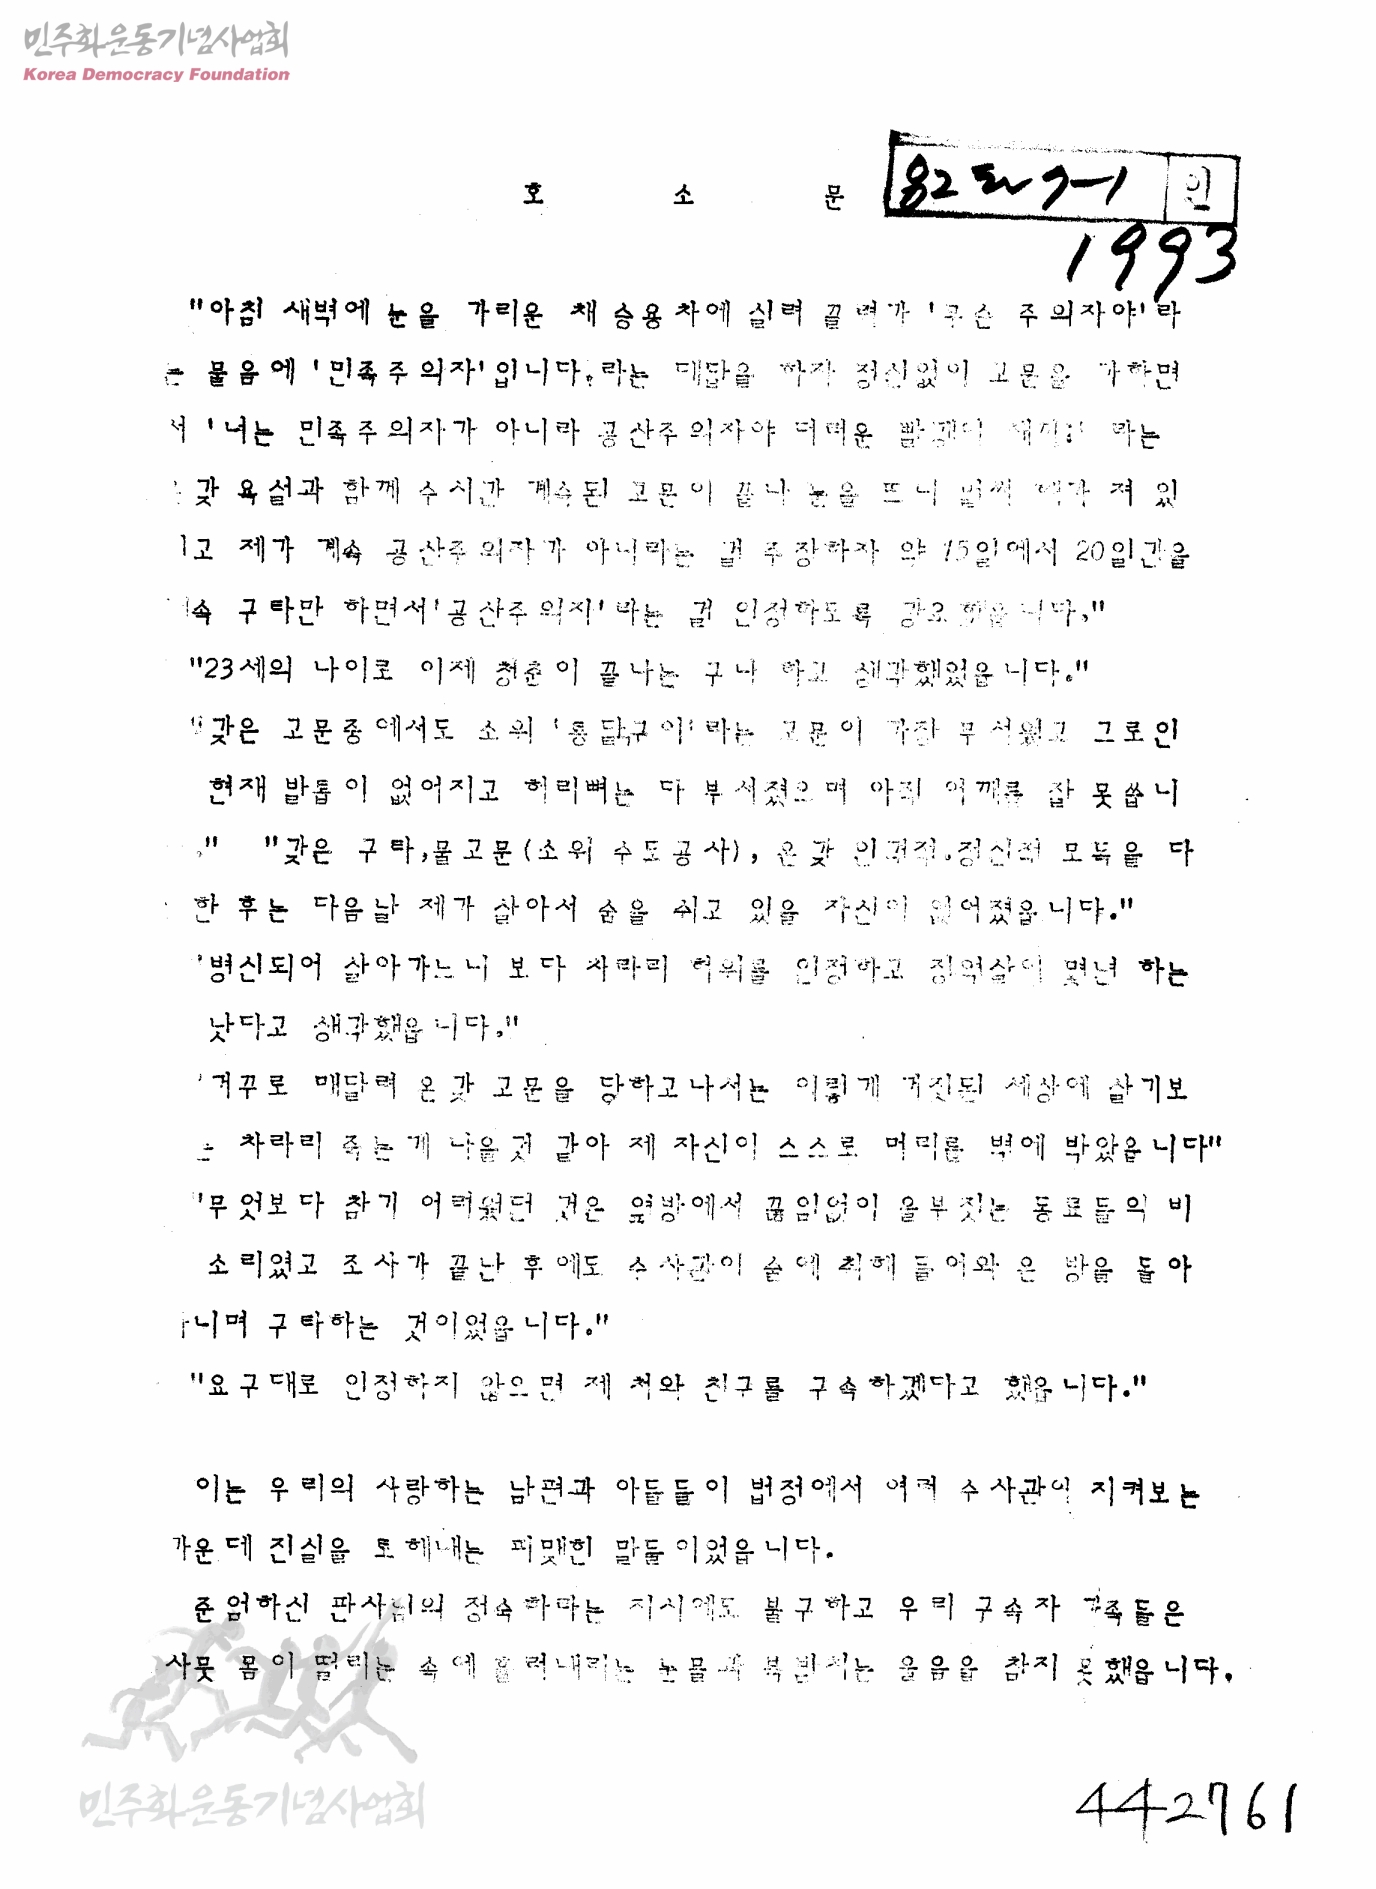 민주화운동기념사업회
Korea Democracy Foundation
호 소 문
인
1993
"아침 새벽에 눈을 가리운 채 승용차에 실려 끌려가 '무슨 주의자야'라
는 물음에 '민족주의자'입니다.라는 대답을 하자 정신없이 고문을 가하면
서 '너는 민족주의자가 아니라 공산주의자야 더러운 빨갱이 새끼!' 라는
갖 욕설과 함께 수시간 계속된 고문이 끝나 눈을 뜨니 벌써 해가 져 있
고 제가 계속 공산주의자가 아니라는 걸 주장하자 약 15일에서 20일간을
속 구타만 하면서'공산주의자'라는 걸 인정하도록 강요했읍니다."
"23세의 나이로 이제 청춘이 끝나는 구나 하고 생각했었읍니다."
갖은 고문중에서도 소위 '통닭구이'라는 고문이 가장 무서웠고 그로인
현재 발톱이 없어지고 허리뼈는 다 부서졌으며 아직 어깨를 잘 못씁니
." "갖은 구타,물고문(소위 수도공사), 온갖 인격적.정신적 모독을 다
한 후는 다음날 제가 살아서 숨을 쉬고 있을 자신이 없어졌읍니다."
'병신되어 살아가느니 보다 차라리 허위를 인정하고 징역살이 몇년 하는
낫다고 생각했읍니다."
'거꾸로 매달려 온갖 고문을 당하고나서는 이렇게 거짓된 세상에 살기보
는 차라리 죽는게 나을것 같아 제 자신이 스스로 머리를 벽에 박았읍니다"
"무엇보다 참기 어려웠던 것은 옆방에서 끊임없이 울부짖는 동료들의 비
소리였고 조사가 끝난 후에도 수사관이 술에 취해 들어와 온 방을 돌아
니며 구타하는 것이었읍니다."
"요구대로 인정하지 않으면 제 처와 친구를 구속하겠다고 했읍니다."
이는 우리의 사랑하는 남편과 아들들이 법정에서 여러 수사관이 지켜보는
가운데 진실을 토해내는 피맺힌 말들이었읍니다.
준엄하신 판사님의 정숙하라는 지시에도 불구하고 우리 구속자 가족들은
사뭇 몸이 떨리는 속에 흘러내리는 눈물과 복받치는 울음을 참지 못했읍니다.
민주화운동기념사업회
442761